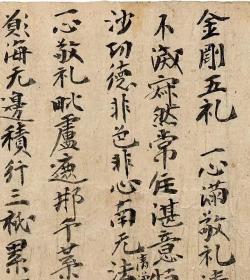 金剛五礼 一心滿敬礼
不滅寂然常住湛意
沙功德非色非心南无法
一心敬礼毗盧遮那千葉
海无邊積行三祇累